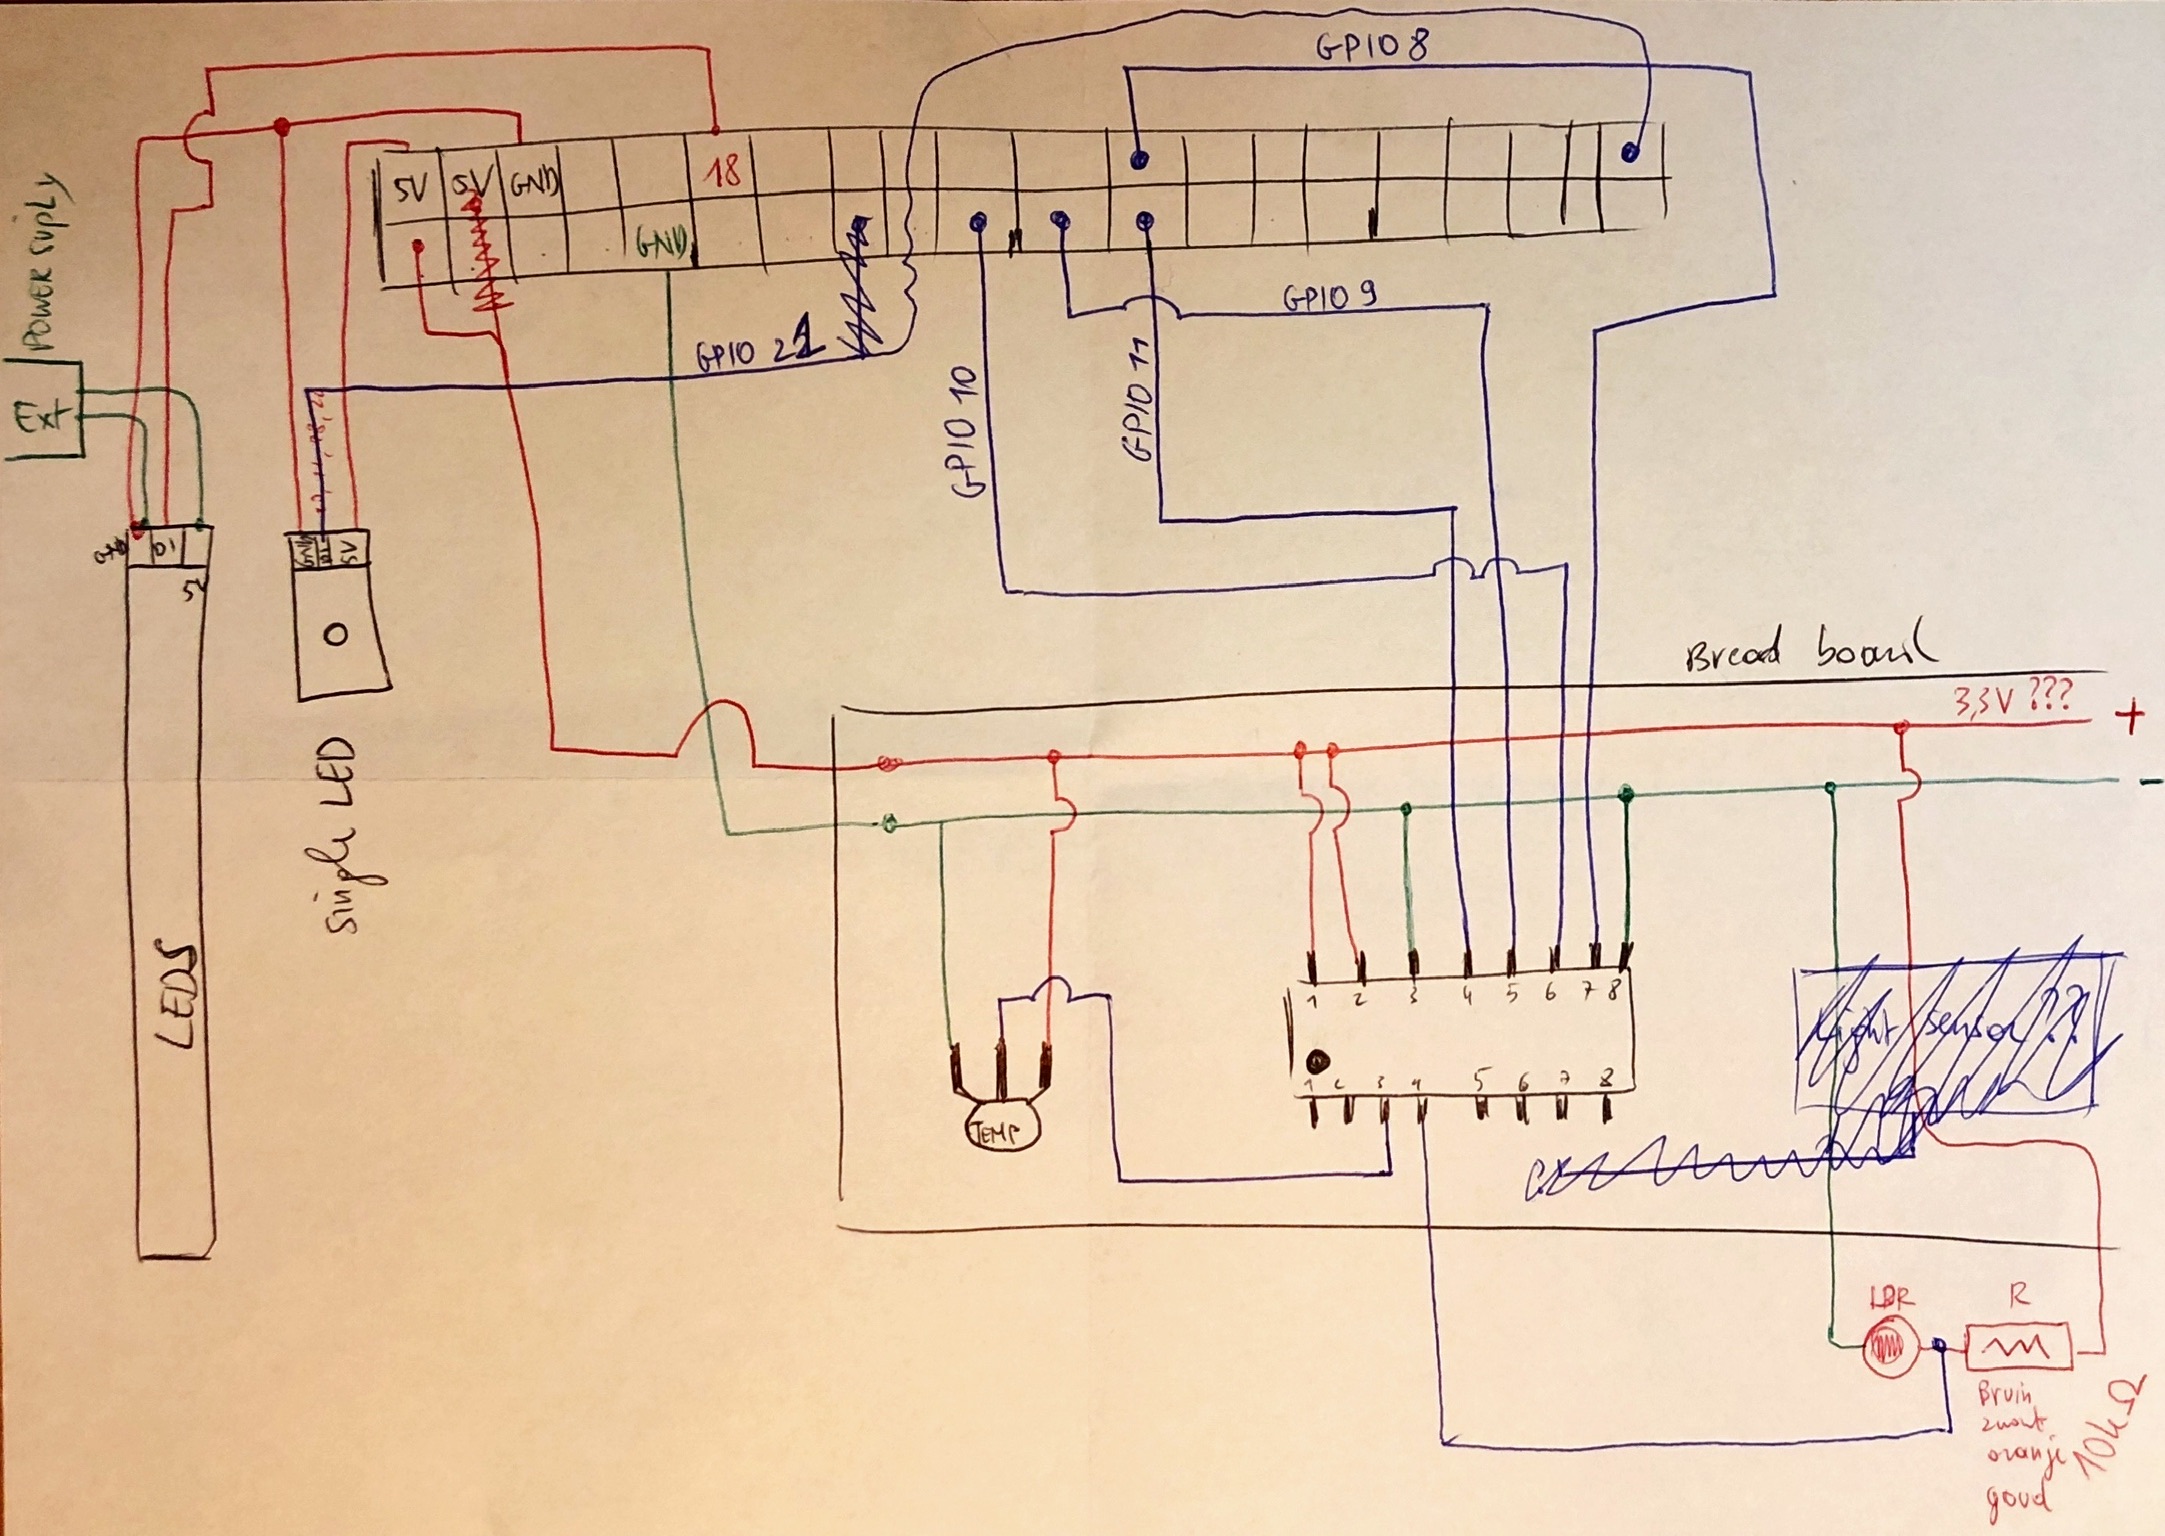 GPIO 8
5V 5V GND 18
GND
Power supply
Ext
GPIO 21
GPIO 9
GPIO 10
GPIO 11
GND DI
5V
GND 5V
Single LED
LEDS
Bread board
3,3V ???
+
-
1 2 3 4 5 6 7 8
1 2 3 4 5 6 7 8
TEMP
light sensor ??
LDR R
Bruin
zwart
oranje
goud
10k Ω